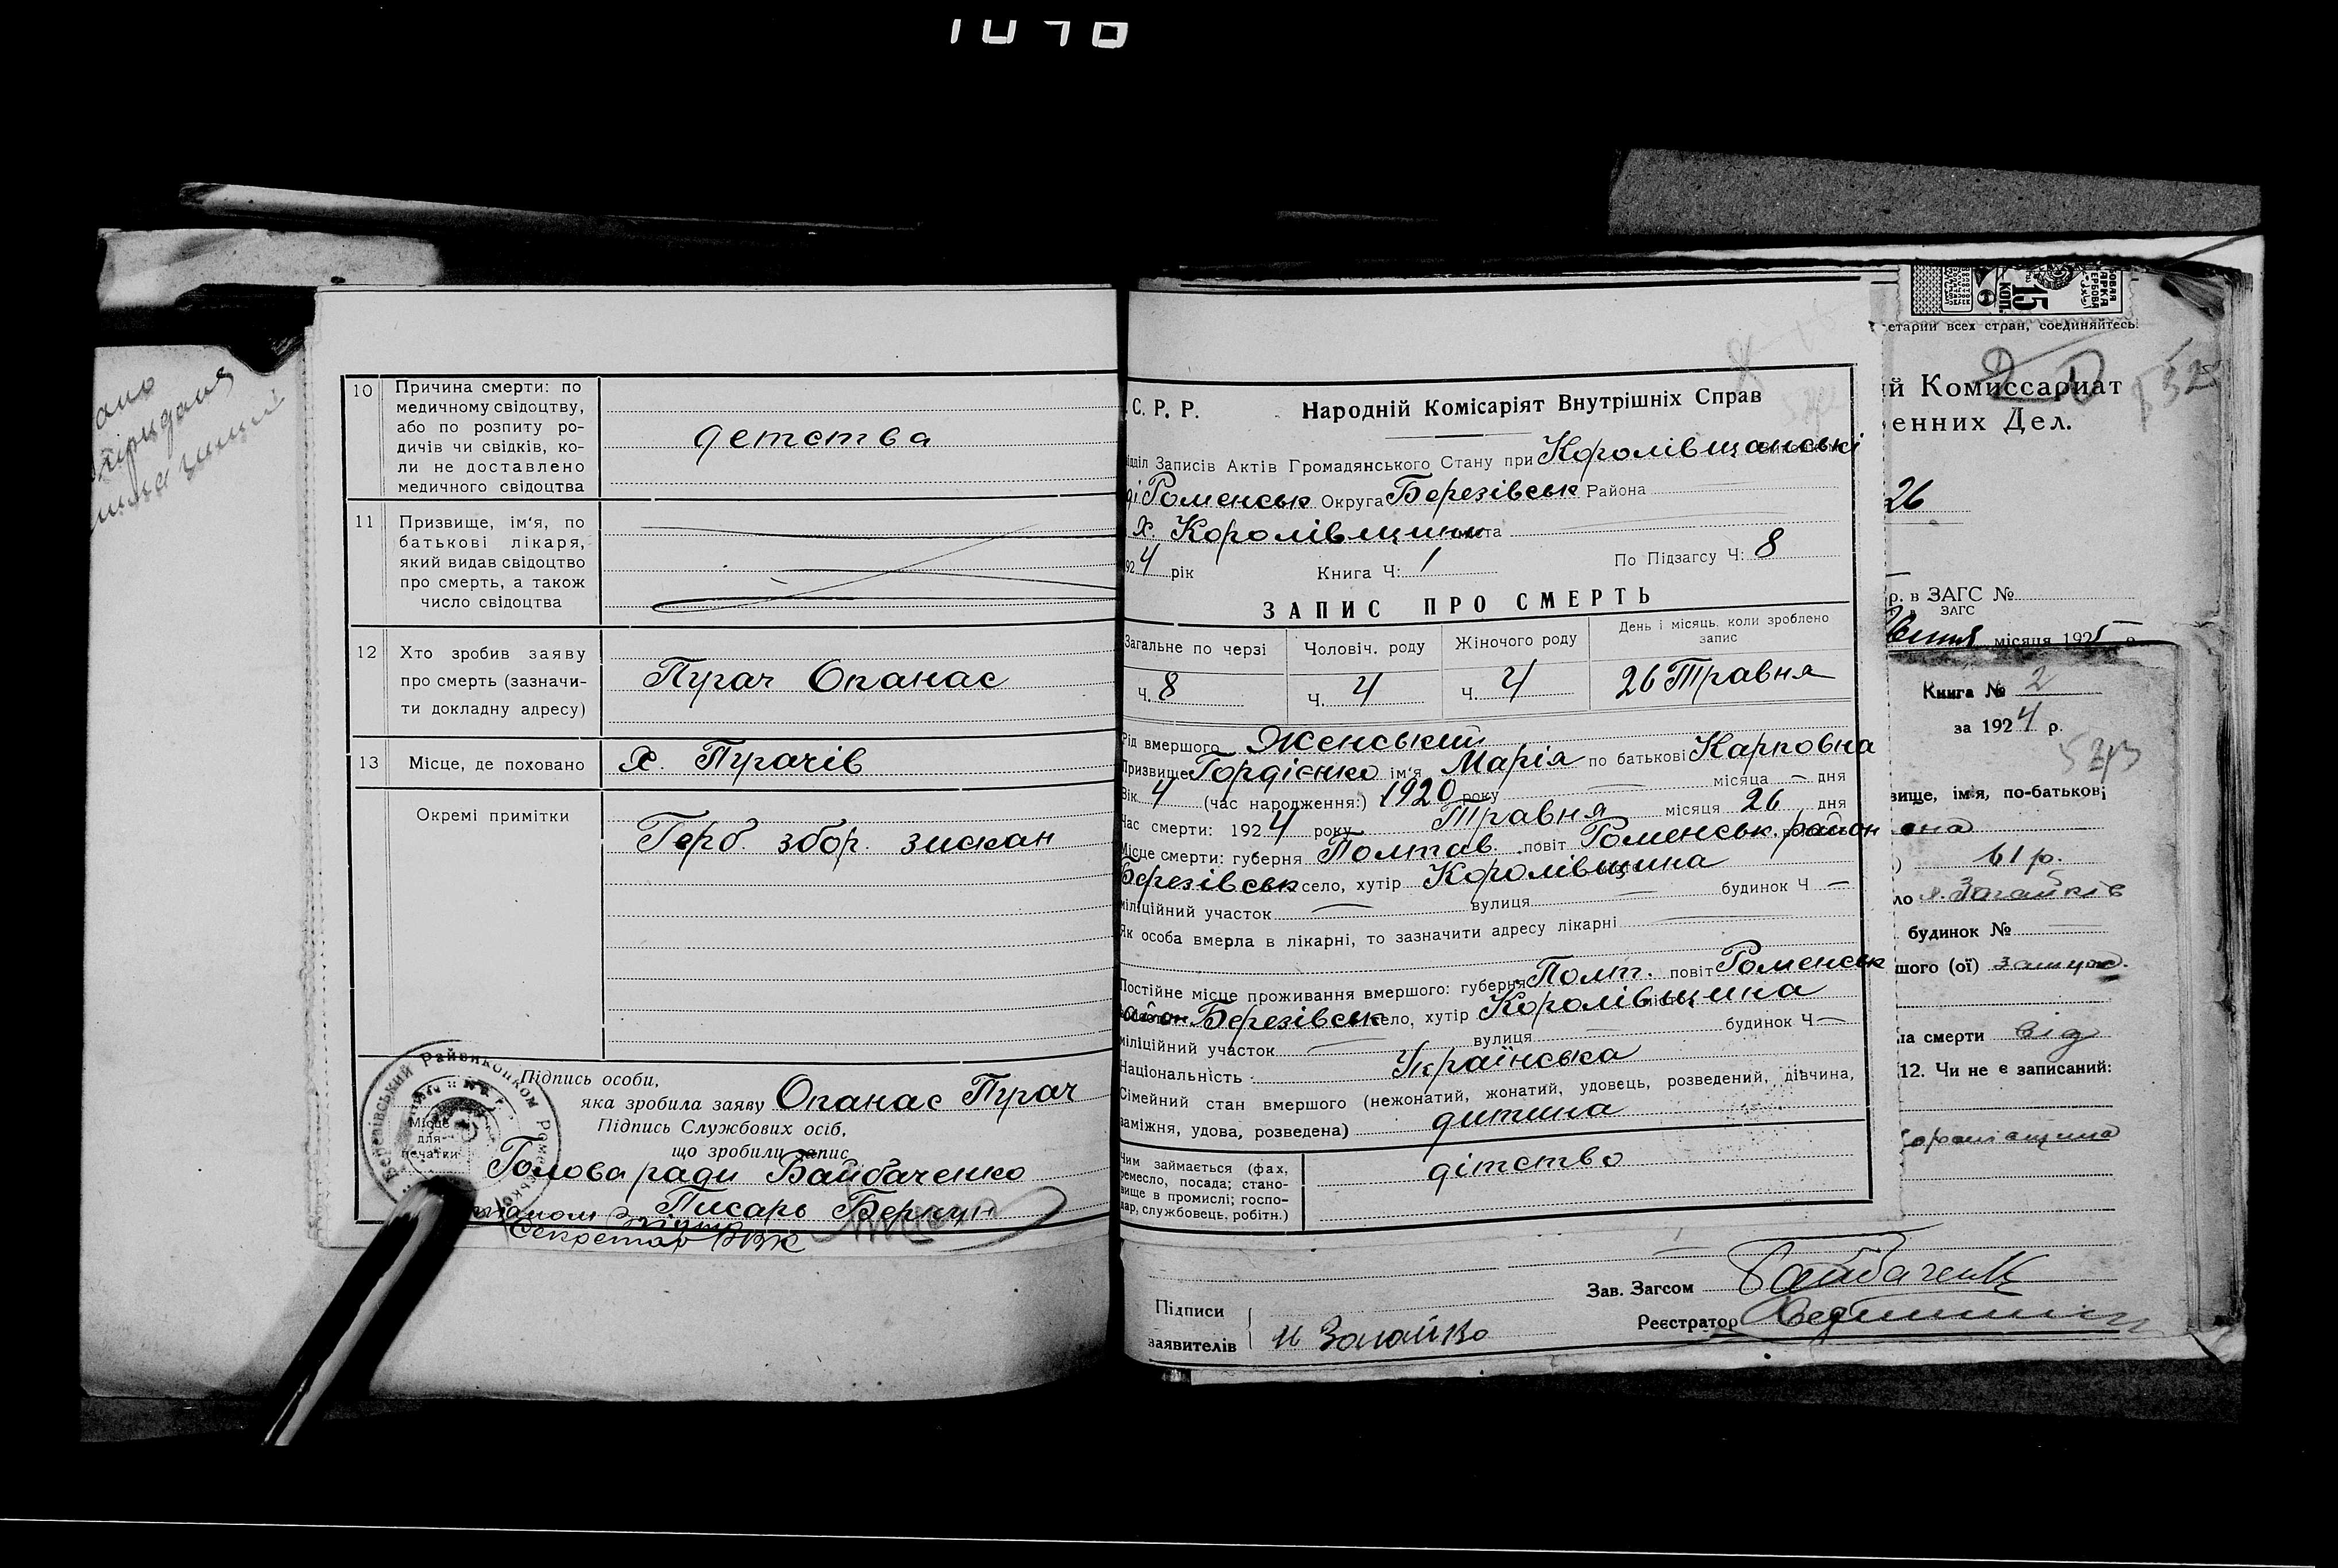 10 Причина смерти: по
медичному свідоцтву,
або по розпиту ро-
дичів чи свідків, ко-
ли не доставлено
медичного свідоцтва
детства
11 Призвище, ім'я, по
батькові лікаря,
який видав свідоцтво
про смерть, а також
число свідоцтва
12 Хто зробив заяву
про смерть (зазначи-
ти докладну адресу)
Пугач Опанас
13 Місце, де поховано х. Пугачів
Окремі примітки
Герб. збор. зискан
Підпись особи,
яка зробила заяву Опанас Пугач
Підпись Службових осіб,
що зробили запис
Місце
для
печатки
Голова ради Байбаченко
Писарь Беркун
Секретар РВК
С. Р. Р. Народній Комісаріят Внутрішніх Справ
Записів Актів Громадянського Стану при Королівщанські
Роменськ Округа Березівськ Района
х. Королівщини
4 рік Книга Ч: 1 По Підзагсу Ч: 8
ЗАПИС ПРО СМЕРТЬ
Загальне по черзі Чоловіч. роду Жіночого роду День і місяць, коли зроблено
запис
Ч. 8 Ч. 4 Ч. 4 26 Травня
Рід вмершого Женський
Призвище Гордієнко ім'я Марія по батькові Карповна
Вік 4 (час народження:) 1920 року — місяца — дня
Час смерти: 1924 року Травня місяця 26 дня
Місце смерти: губерня Полтав. повіт Роменськ. район
Березівськ село, хутір Королівщина
міліційний участок — вулиця — будинок Ч —
Як особа вмерла в лікарні, то зазначити адресу лікарні
Постійне місце проживання вмершого: губерня Полт. повіт Роменськ
Березівськ село, хутір Королівщина
міліційний участок — вулиця — будинок Ч —
Національність Українська
Сімейний стан вмершого (нежонатий, жонатий, удовець, розведений, дівчина,
заміжня, удова, розведена) дитина
Чим займається (фах,
ремесло, посада; стано-
вище в промислі; госпо-
дар, службовець, робітн.)
дітство
15 КОП.
етарии всех стран, соединяйтесь!
й Комиссариат
енних Дел.
26
р. в ЗАГС №
ЗАГС
місяця 1925 р.
Книга № 2
за 1924 р.
523
вище, ім'я, по-батькові
61 р.
будинок №
шого (ої)
на смерти від
12. Чи не є записаний:
Зав. Загсом Байбаченк
Реєстратор
Підписи
заявителів